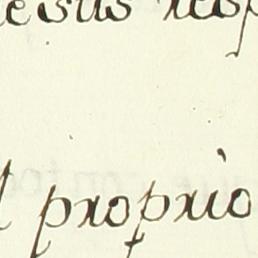 esus resp
l proprio